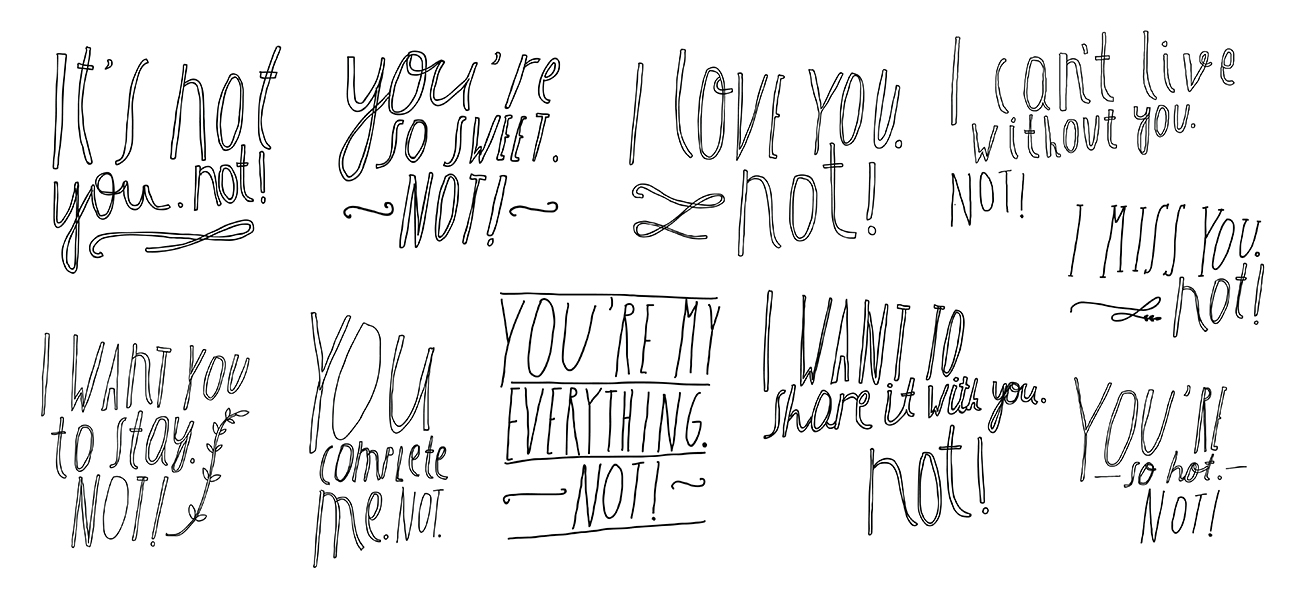 It's not
you. not!
you're
SO SWEET.
NOT!
I LOVE YOU.
not!
I can't live
without you.
NOT!
I MISS YOU.
not!
I WANT YOU
to stay.
NOT!
YOU
complete
me. NOT.
YOU'RE MY
EVERYTHING.
NOT!
I WANT TO
share it with you.
not!
YOU'RE
so hot.
NOT!